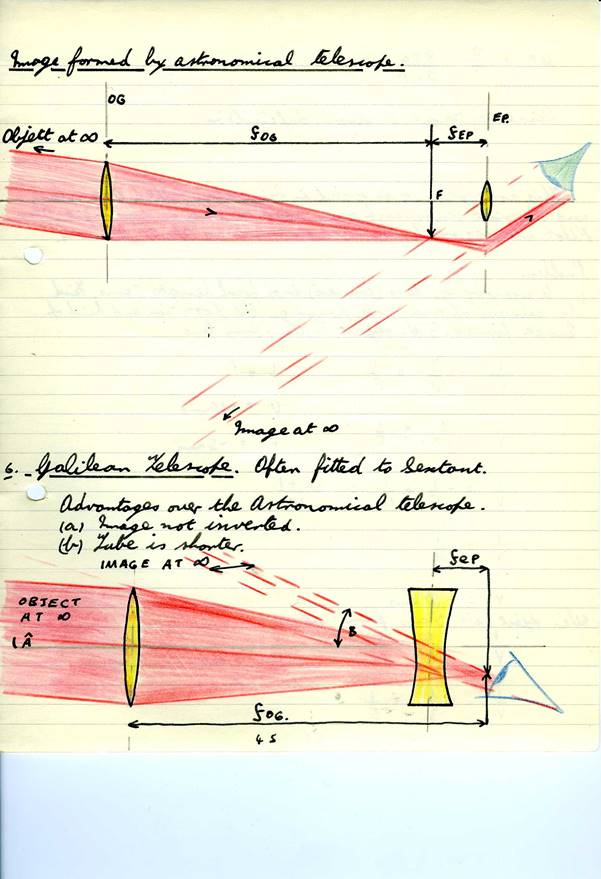 Image formed by astronomical telescope.
OG
EP.
Object at ∞
fOG
fEP
F
Image at ∞
6. Galilean Telescope. Often fitted to Sextant.
Advantages over the Astronomical telescope.
(a) Image not inverted.
(b) Tube is shorter.
IMAGE AT ∞
fEP
OBJECT
AT ∞
Â
B
fOG.
45